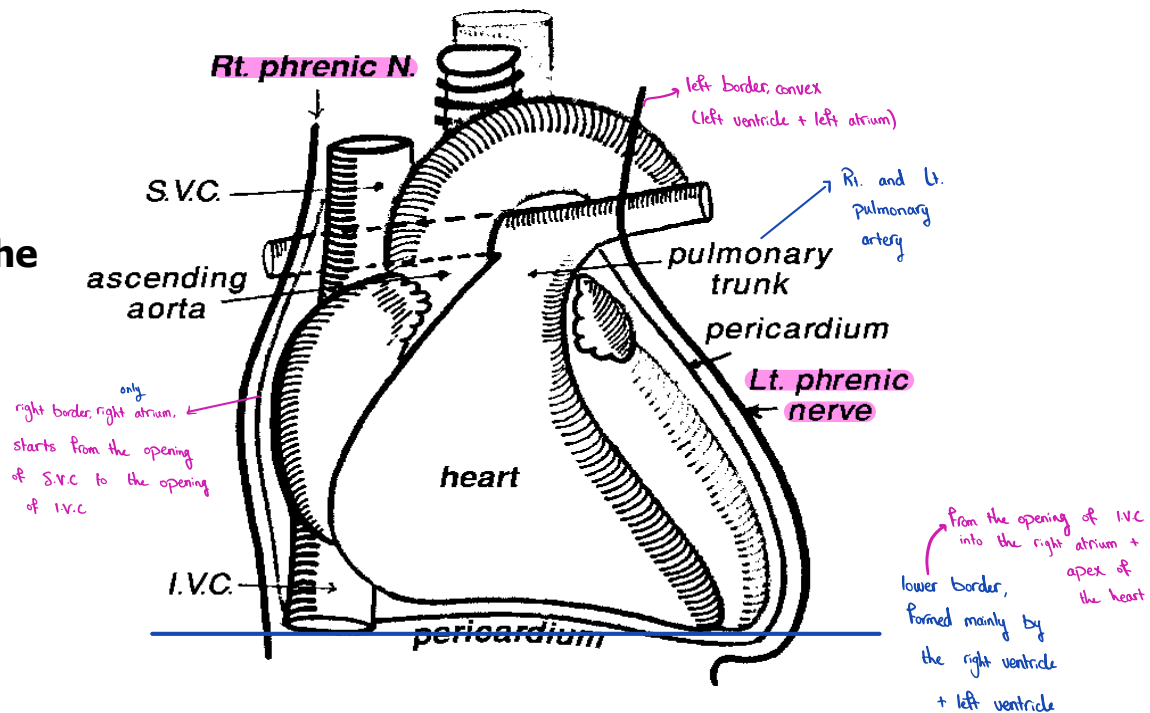 Rt. phrenic N.
left border, convex
(left ventricle + left atrium)
S.V.C.
Rt. and Lt.
pulmonary
artery
he
ascending
aorta
pulmonary
trunk
pericardium
Lt. phrenic
nerve
only
right border, right atrium,
starts from the opening
of S.V.C to the opening
of I.V.C
heart
from the opening of I.V.C
into the right atrium +
apex of
the heart
I.V.C.
lower border,
formed mainly by
the right ventricle
+ left ventricle
pericardium